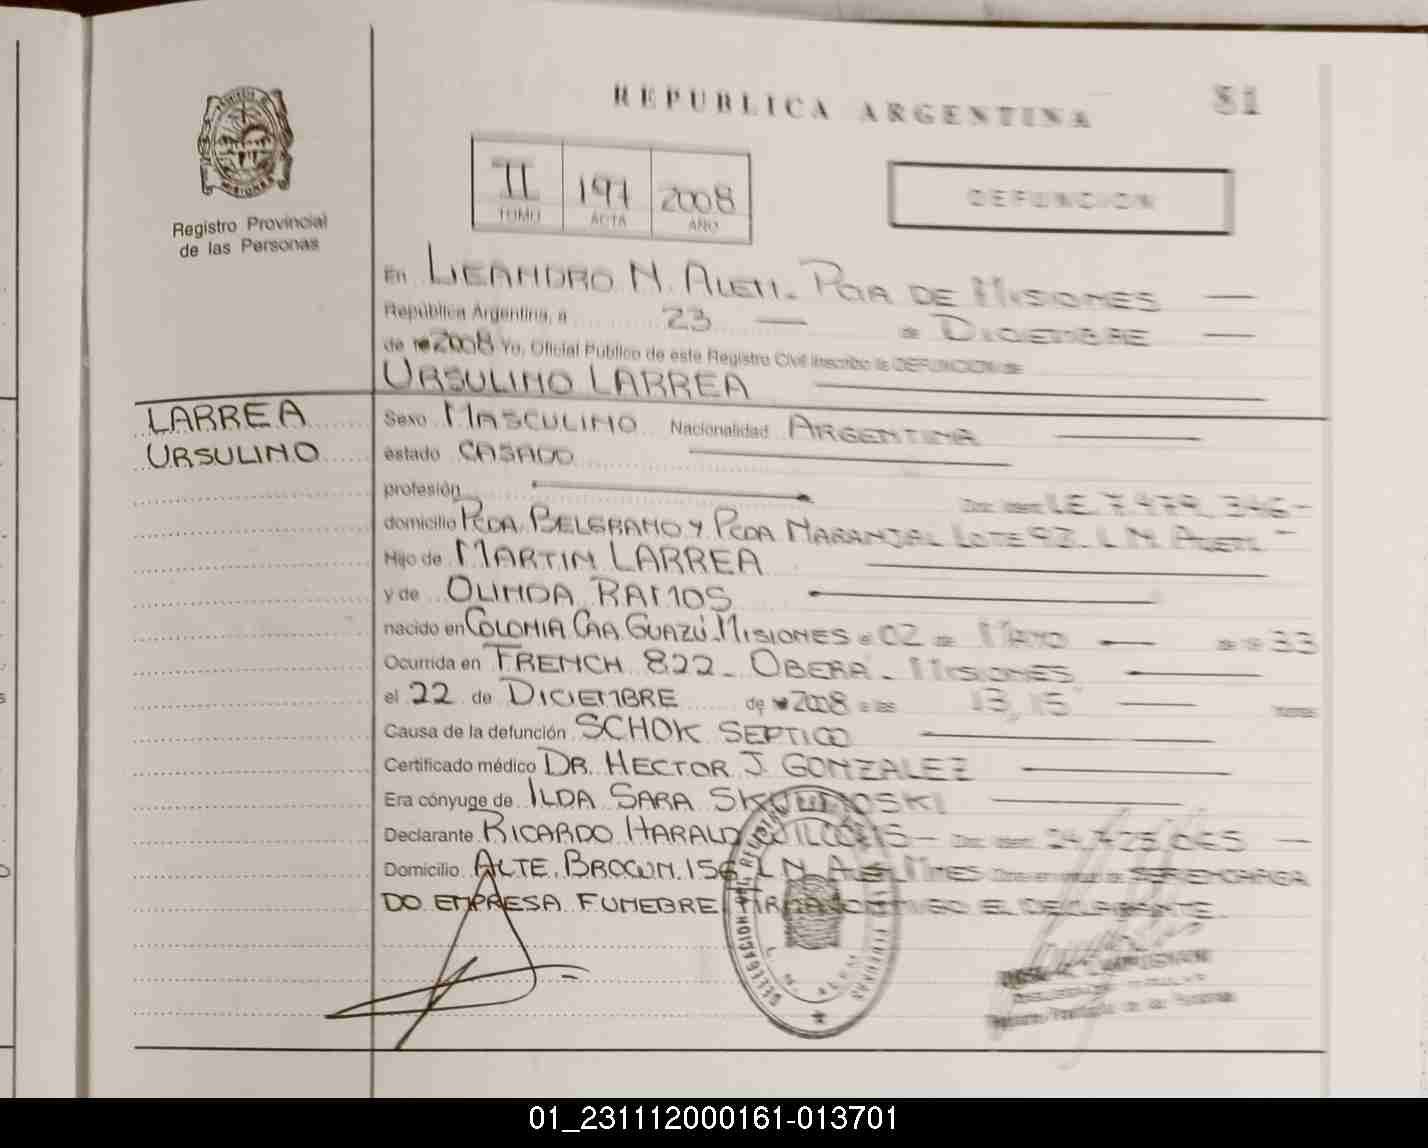 REPUBLICA ARGENTINA
81
Registro Provincial
de las Personas
MISIONES
II 197 2008
TOMO ACTA AÑO
DEFUNCION
En LEANDRO N. ALEM. PCIA DE MISIONES —
República Argentina, a 23 — de DICIEMBRE —
de 2008 Yo, Oficial Público de este Registro Civil inscribo la DEFUNCION de
URSULINO LARREA
LARREA
URSULINO
Sexo MASCULINO Nacionalidad ARGENTINA —
estado CASADO
profesión — Doc. Ident. L.E. 7.474.346-
domicilio PCDA. BELGRANO Y PCDA NARANJAL LOTE 92. L.N. ALEM -
Hijo de MARTIN LARREA
y de OLINDA RAMOS
nacido en COLONIA CAA GUAZÚ. MISIONES el 02 de MAYO — de 19 33
Ocurrida en FRENCH 822 - OBERA - MISIONES
el 22 de DICIEMBRE de 2008 a las 13,15 — horas
Causa de la defunción SCHOK SEPTICO
Certificado médico DR. HECTOR J. GONZALEZ
Era cónyuge de ILDA SARA
Declarante RICARDO HARALD — Doc. Ident. 24.725.065 —
Domicilio ALTE. BROWN. 156 L.N. ALEM MNES SER ENCARGA
DO EMPRESA FUNEBRE EL DECLARANTE.
01_231112000161-013701